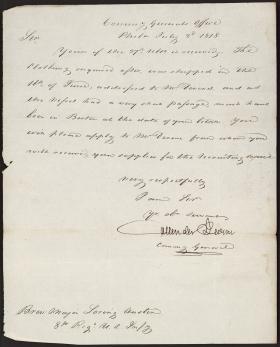 Commy Generals Office
Phila July 2d 1818
Sir
Yours of the 27th Ulto is received. The
Clothing enquired after, was shipped in the
11th of June, addressed to Mr and as
the Vessel had a very short passage must have
been in Boston at the date of your letter. You
will please apply to Mr from whom you
will receive your supplies for the Recruiting service
Very respectfully
I am Sir
yr ob servant
Callender Irvine
Commy General
Brev Major Loring Austin
8th Regt U.S. Infy